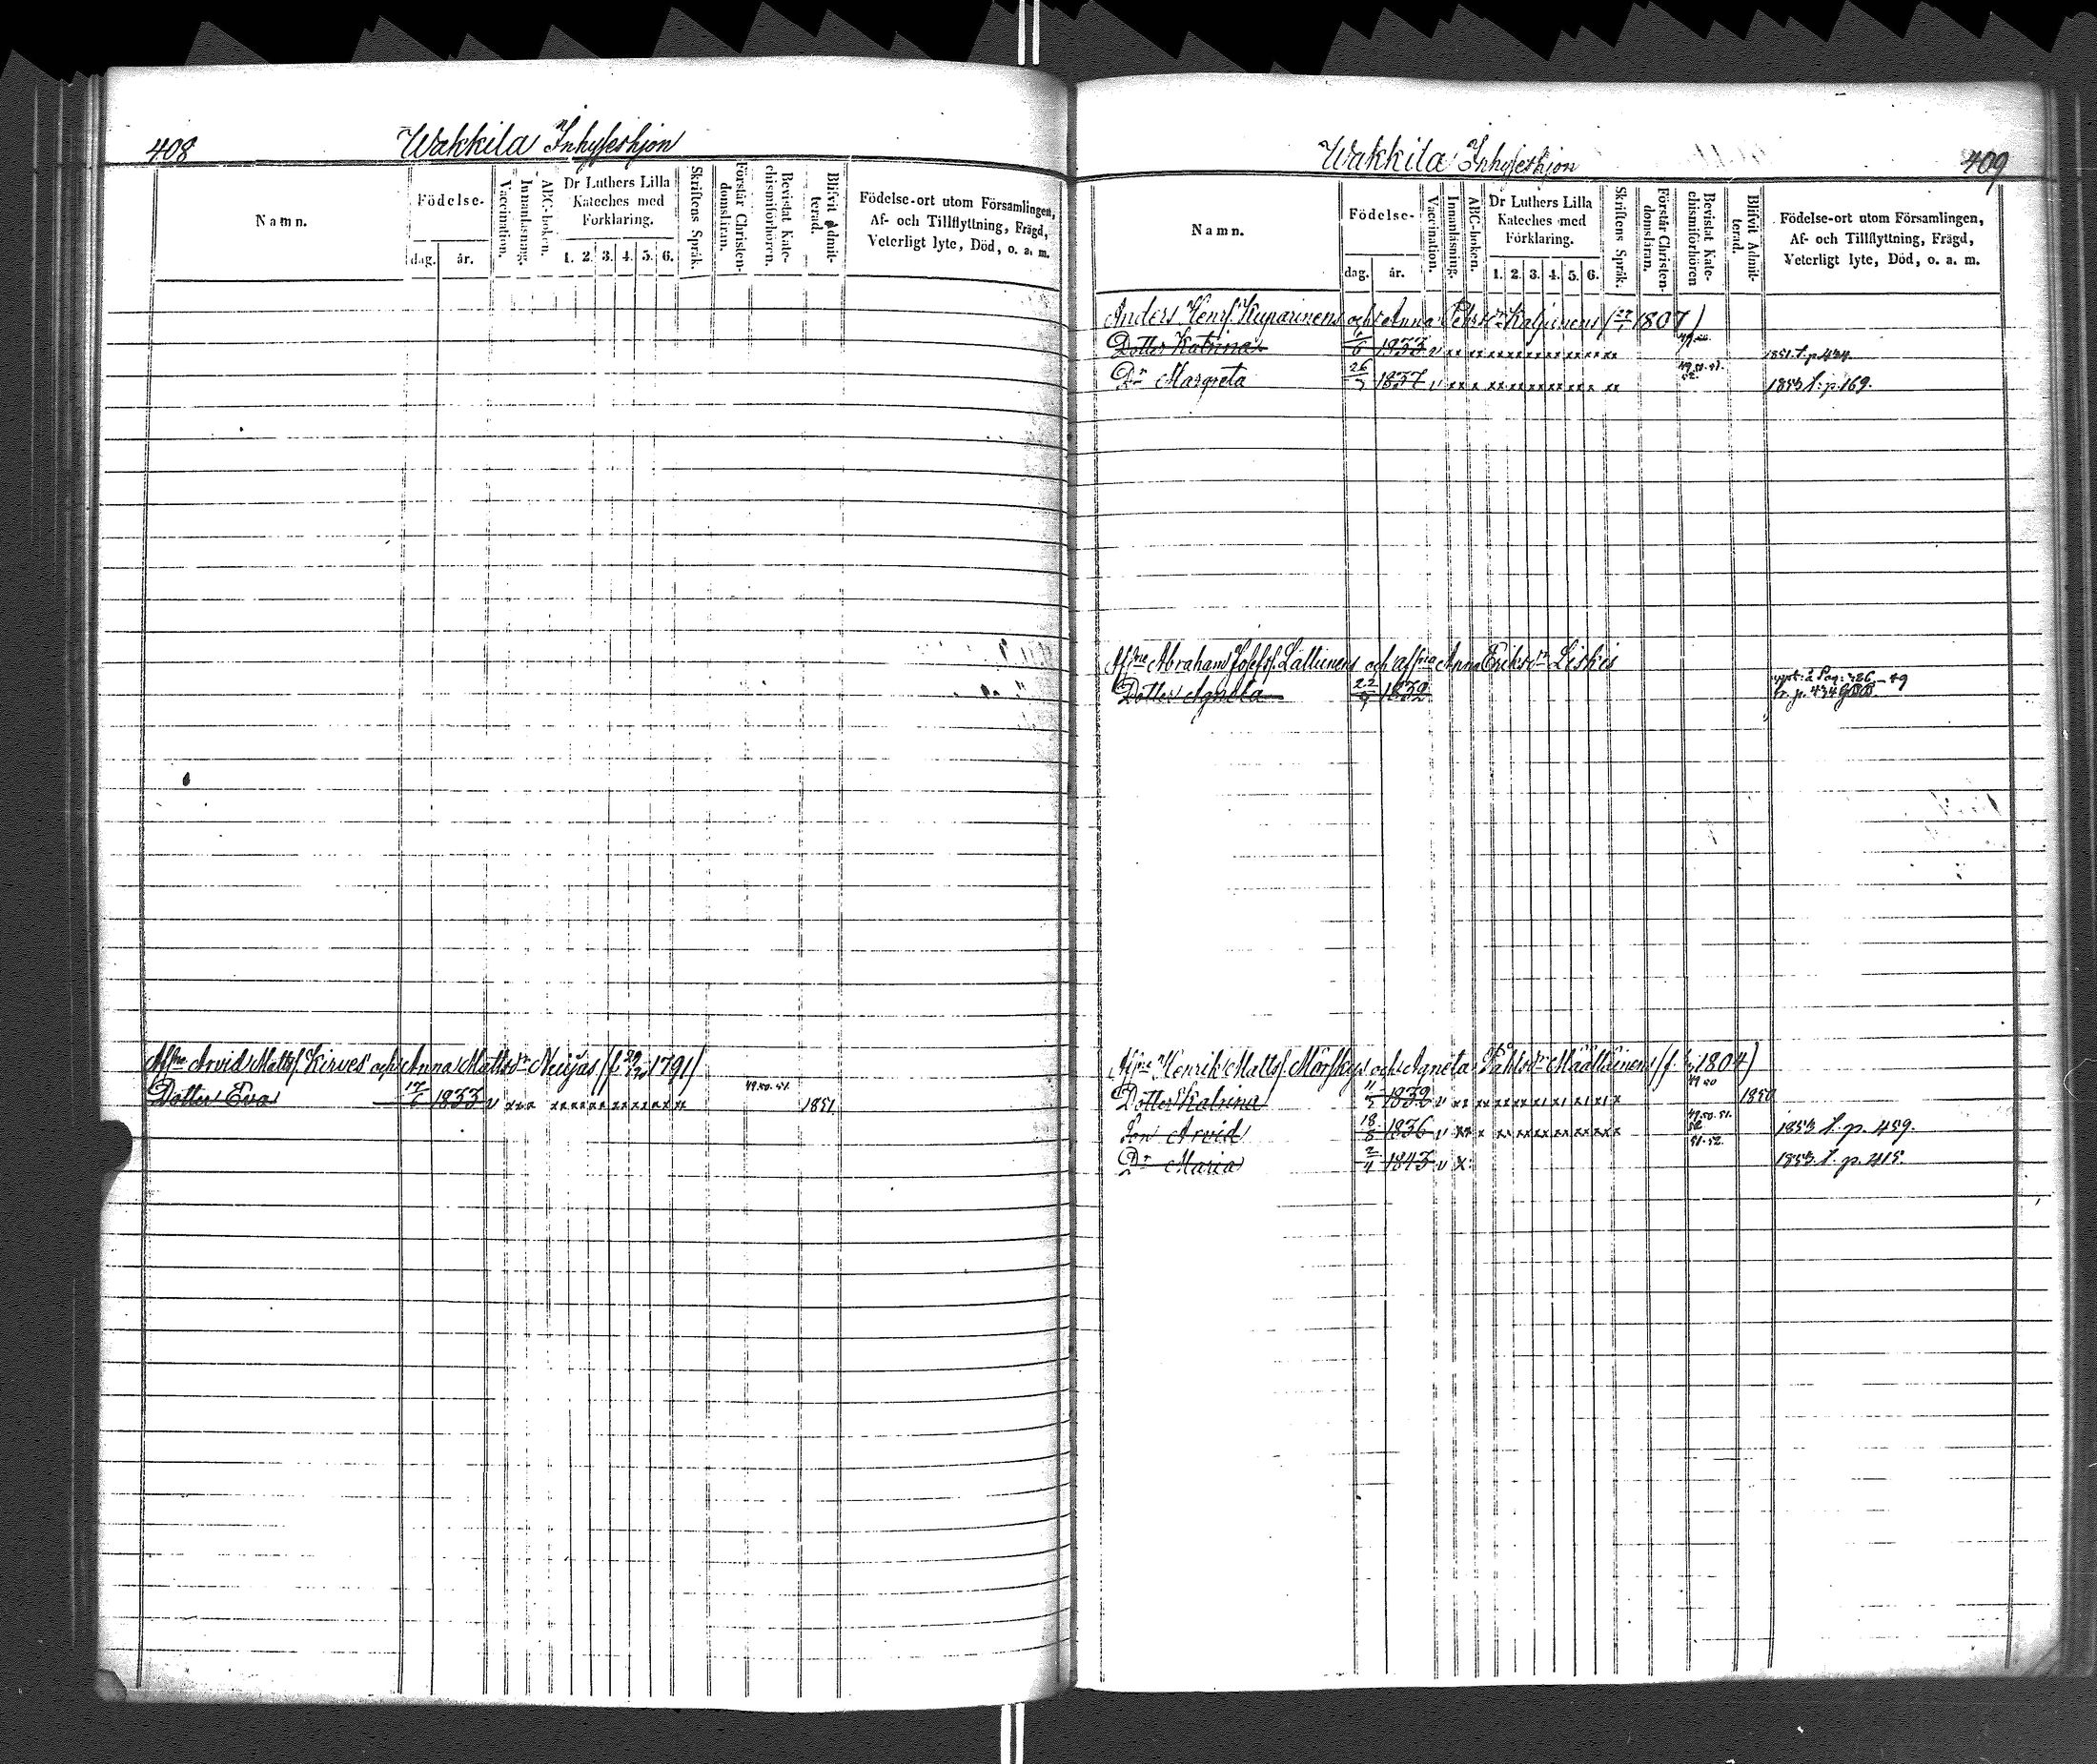 408 Wakkila Inhyseshjon
Namn.
Födelse-
dag. år.
Vaccination.
Innanläsning.
ABC-boken.
Dr Luthers Lilla Kateches med Förklaring.
1. 2. 3. 4. 5. 6.
Skriftens Språk.
Förstår Christendomsläran.
Bevistat Katechismiförhören.
Blifvit Admitterad.
Födelse-ort utom Församlingen,
Af- och Tillflyttning, Frägd,
Veterligt lyte, Död, o. a. m.
Afsne Arvid Mattsf. Kirves och Anna Mattsdr Neujas (f. 29/10 1791)
Dotter Eva 17/6 1833 v xxx xxxxxxxxxxxxx 49.50.51. 1851
Wakkila Inhyseshjon 409
Namn.
Födelse-
dag. år.
Vaccination.
Innanläsning.
ABC-boken.
Dr Luthers Lilla Kateches med Förklaring.
1. 2. 3. 4. 5. 6.
Skriftens Språk.
Förstår Christendomsläran.
Bevistat Katechismiförhören
Blifvit Admitterad.
Födelse-ort utom Församlingen,
Af- och Tillflyttning, Frägd,
Veterligt lyte, Död, o. a. m.
Anders Henrs. Kuparinens och Anna Kalpinens 1807)
Dotter Katrina 1833 v xx xx xxxxxxxxxxxx xx 1851 t. p. 434.
Dr Margreta 26/7 1837 v xx x xxxxxxxxxxx xx 1853 t. p. 169.
Afsne Abraham Josefsf. Lättunens och afsna Anna Eriksdr Liskis
Dotter Agneta 22/9 1832
Afsne Henrik Mattsf. Mörskys och Agneta Påhlsdr Määttäinens (f. 1804)
Dotter Katrina 1832 v xx xxxxxxxxxxxxx x 49 50 1850
Son Arvid 18/8 1836 v xx x xxxxxxxxxxxxx 49.50.51. 52 1853 t. p. 459.
Dr Maria 2/4 1843 v x 51.52. 1853. t. p. 415.